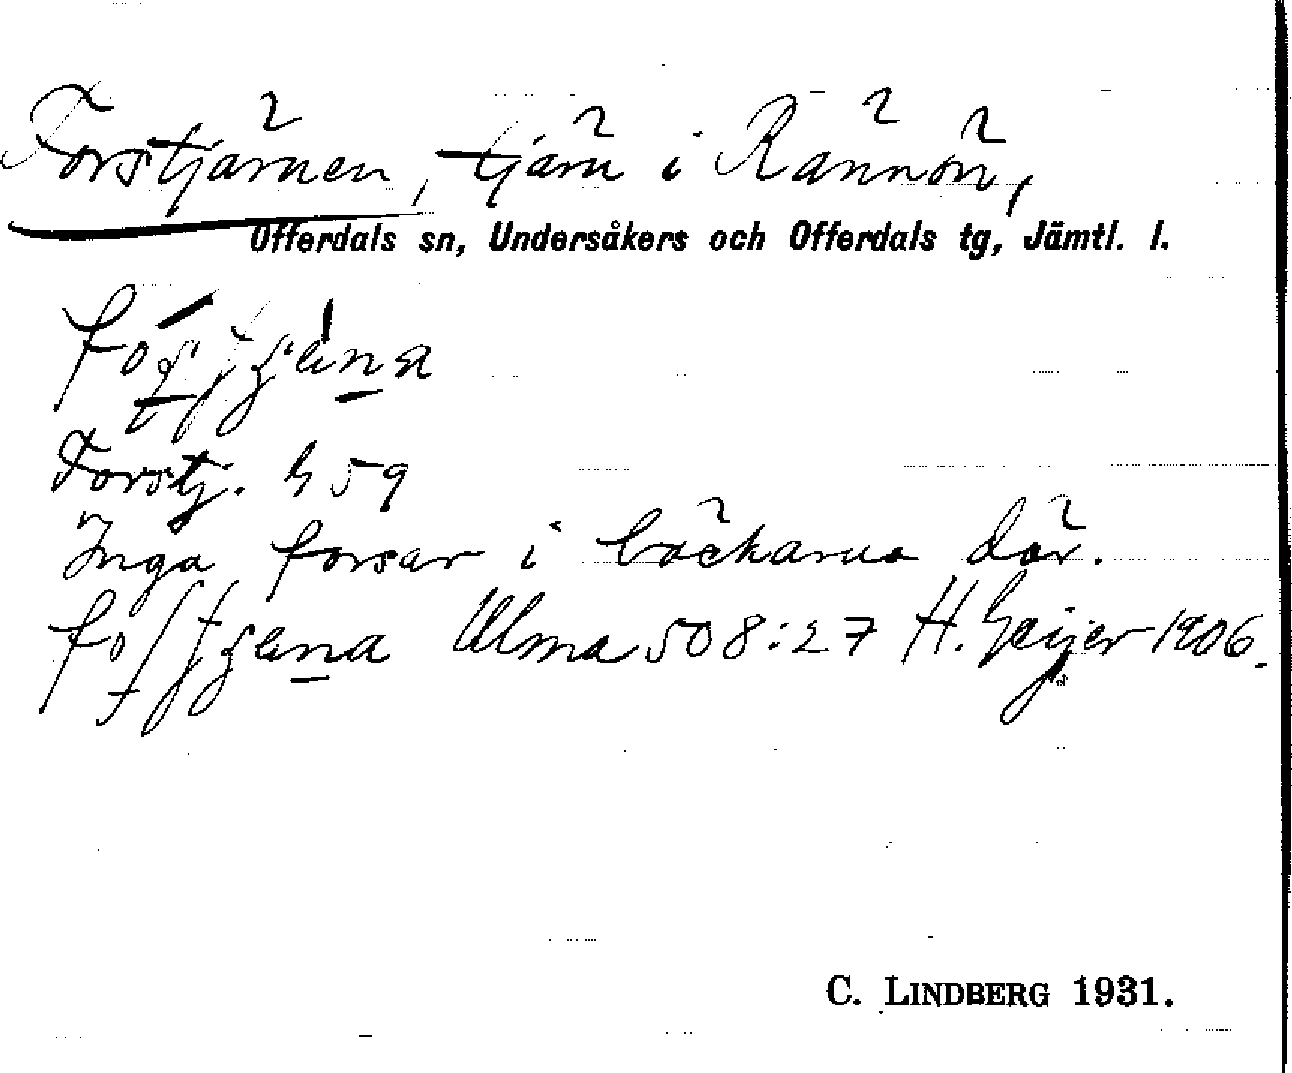 Forstjärnen, tjärn i Rännön,
Offerdals sn, Undersåkers och Offerdals tg, Jämtl. l.
Forstj. h 59
Inga forsar i bäckarna där.
Ulma 508:27 H. Geijer 1906.
C. LINDBERG 1931.